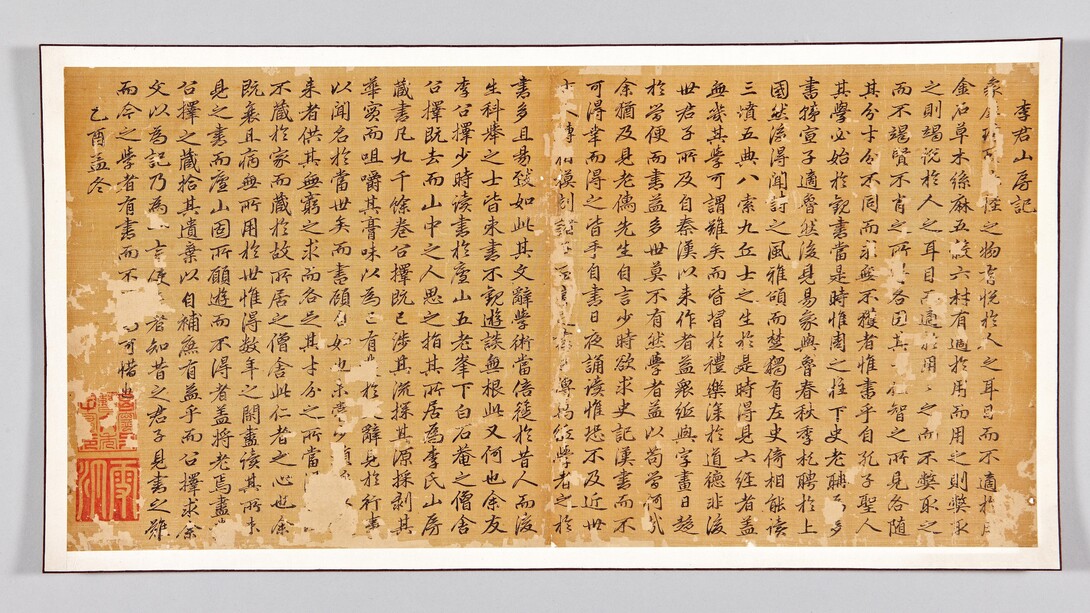 李君山房記
象犀珠怪之物有悅於人之耳目而不適於用
金石草木絲麻五穀六材有適於用而用之則獘取
之則竭悅於人之耳目而適於用用之而不獘取之
而不竭賢不肖之所各因其仁智之所見各隨
其分才分不同而求無不獲者惟書乎自孔子聖人
其學必始於觀書當是時惟周之柱下史老聃為多
書韓宣子適魯然後見易象與魯春秋季札聘於上
國然後得聞詩之風雅頌而楚獨有左史倚相能讀
三墳五典八索九丘士之生於是時得見六經者蓋
無幾其學可謂難矣而皆習於禮樂深於道德非後
世君子所及自秦漢以来作者益眾紙與字畫日趨
於簡便而書益多世莫不有然學者益以苟簡何哉
余猶及見老儒先生自言少時欲求史記漢書而不
可得幸而得之皆手自書日夜誦讀惟恐不及近世
人轉相模刻諸子百家之書傳萬紙學者之於
書多且易致如此其文辭學術當倍蓰於昔人而後
生科舉之士皆束書不觀遊談無根此又何也余友
李公擇少時讀書於廬山五老峯下白石菴之僧舍
公擇既去而山中之人思之指其所居為李氏山房
藏書凡九千餘卷公擇既已涉其流探其源採剝其
華實而咀嚼其膏味以為己有於辭見於行事
以聞名於當世矣而書顧自如也未嘗少
来者供其無窮之求而各足其才分之所當
不藏於家而藏於故所居之僧舍此仁者之心也余
既衰且病無所用於世惟得数年之閒盡讀其所未
見之書而廬山固所願遊而不得者蓋將老焉盡
公擇之藏拾其遺棄以自補庶有益乎而公擇求余
文以為記乃為一言使者知昔之君子見書之難
而今之學者有書而不可惜也
乙酉孟冬